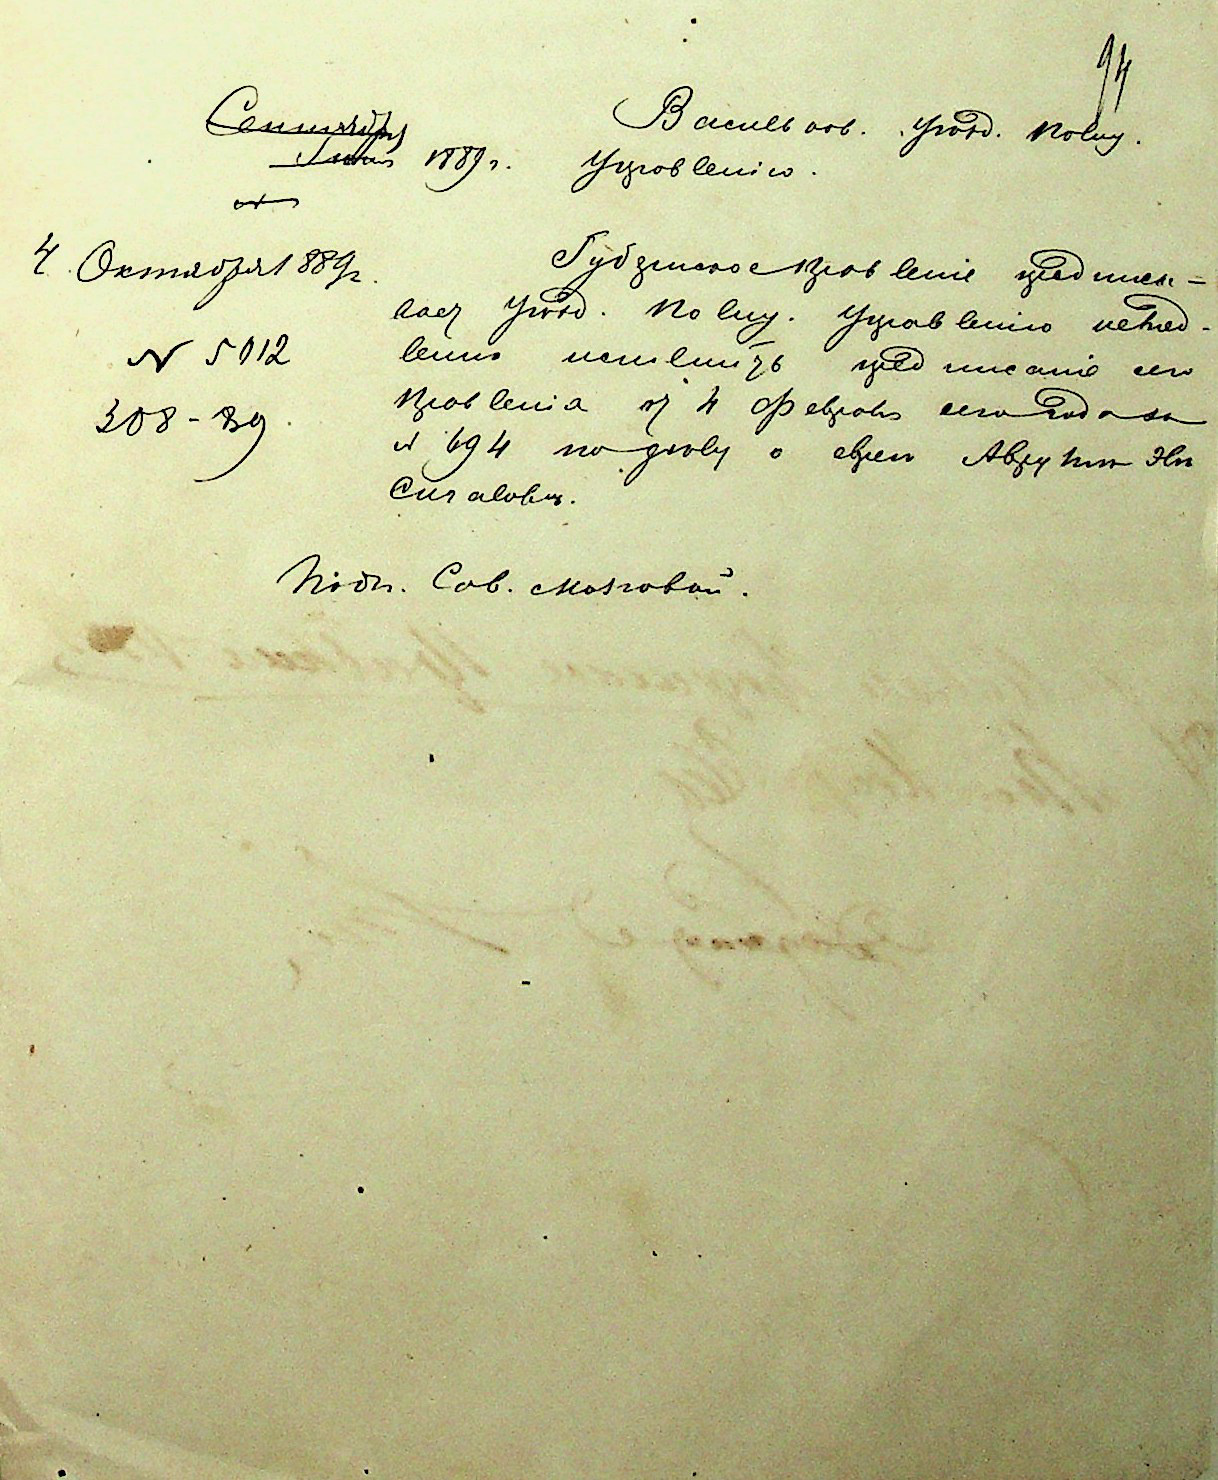 94
Сентября
Июня 1889 г.
Васильков. Уѣзд. Полиц.
Управленію.
4 Октября 1889 г.
N 5912
308 - 89
Губернское Правленіе предписы-
ваетъ Уѣзд. Полиц. Управленію немед-
ленно исполнить предписаніе сего
Правленія отъ 4 Февраля сего года за
N 694 по дѣлу о евреѣ
Сигаловѣ.
Подп. Сов. Мозговой.